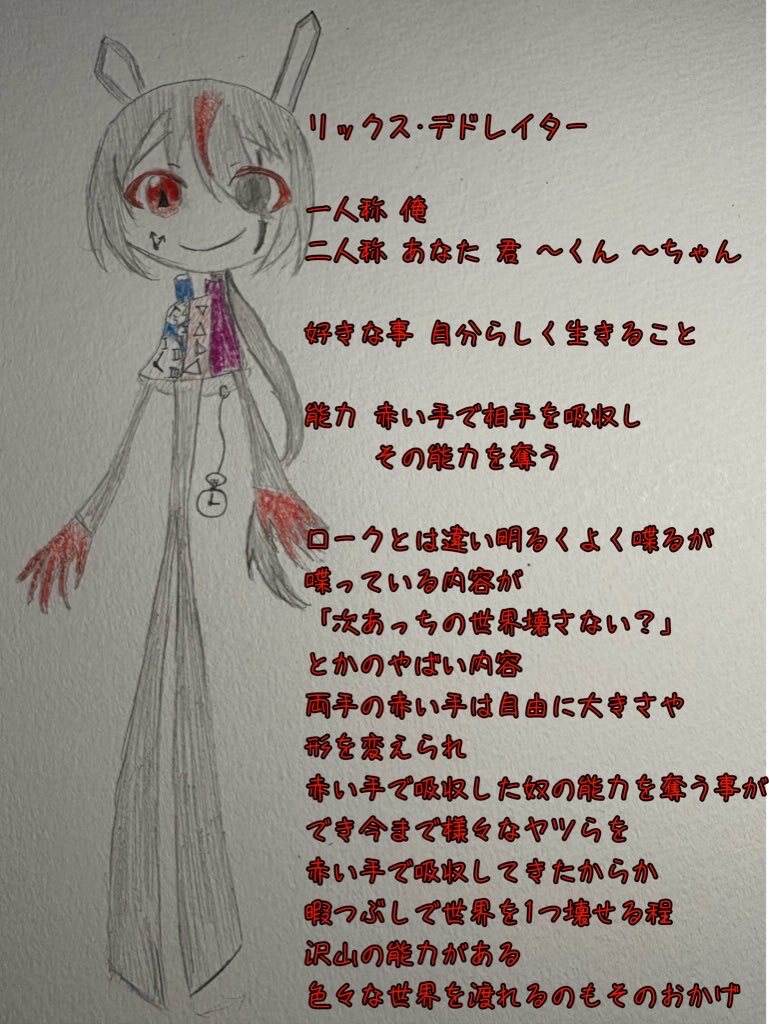 リックス・デドレイター
一人称 俺
二人称 あなた 君 〜くん 〜ちゃん
好きな事 自分らしく生きること
能力 赤い手で相手を吸収し
その能力を奪う
ロークとは違い明るくよく喋るが
喋っている内容が
「次あっちの世界壊さない?」
とかのやばい内容
両手の赤い手は自由に大きさや
形を変えられ
赤い手で吸収した奴の能力を奪う事が
でき今まで様々なヤツらを
赤い手で吸収してきたからか
暇つぶしで世界を1つ壊せる程
沢山の能力がある
色々な世界を渡れるのもそのおかげ